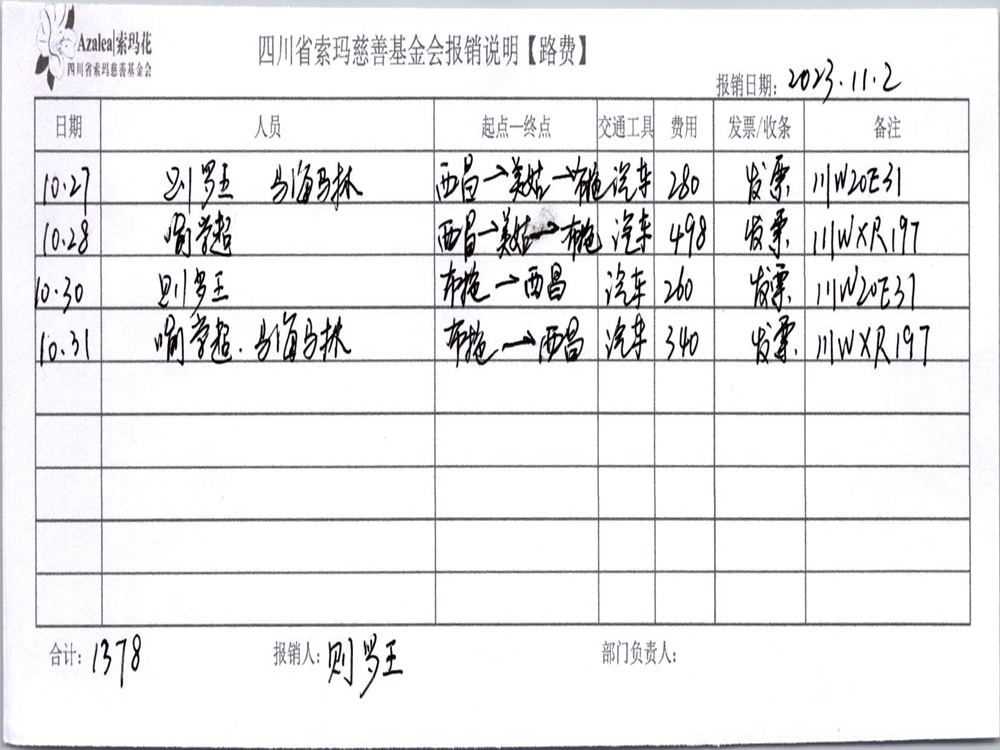 Azalea|索玛花
四川省索玛慈善基金会
四川省索玛慈善基金会报销说明【路费】
报销日期: 2023.11.2
日期 人员 起点—终点 交通工具 费用 发票/收条 备注
10.27 则罗王 马海马林 西昌→美姑→布拖 汽车 280 发票 川W20E31
10.28 喻学超 西昌→美姑→布拖 汽车 498 发票 川WXR197
10.30 则罗王 布拖→西昌 汽车 260 发票 川W20E31
10.31 喻学超.马海马林 布拖→西昌 汽车 340 发票 川WXR197
合计: 1378 报销人: 则罗王 部门负责人: